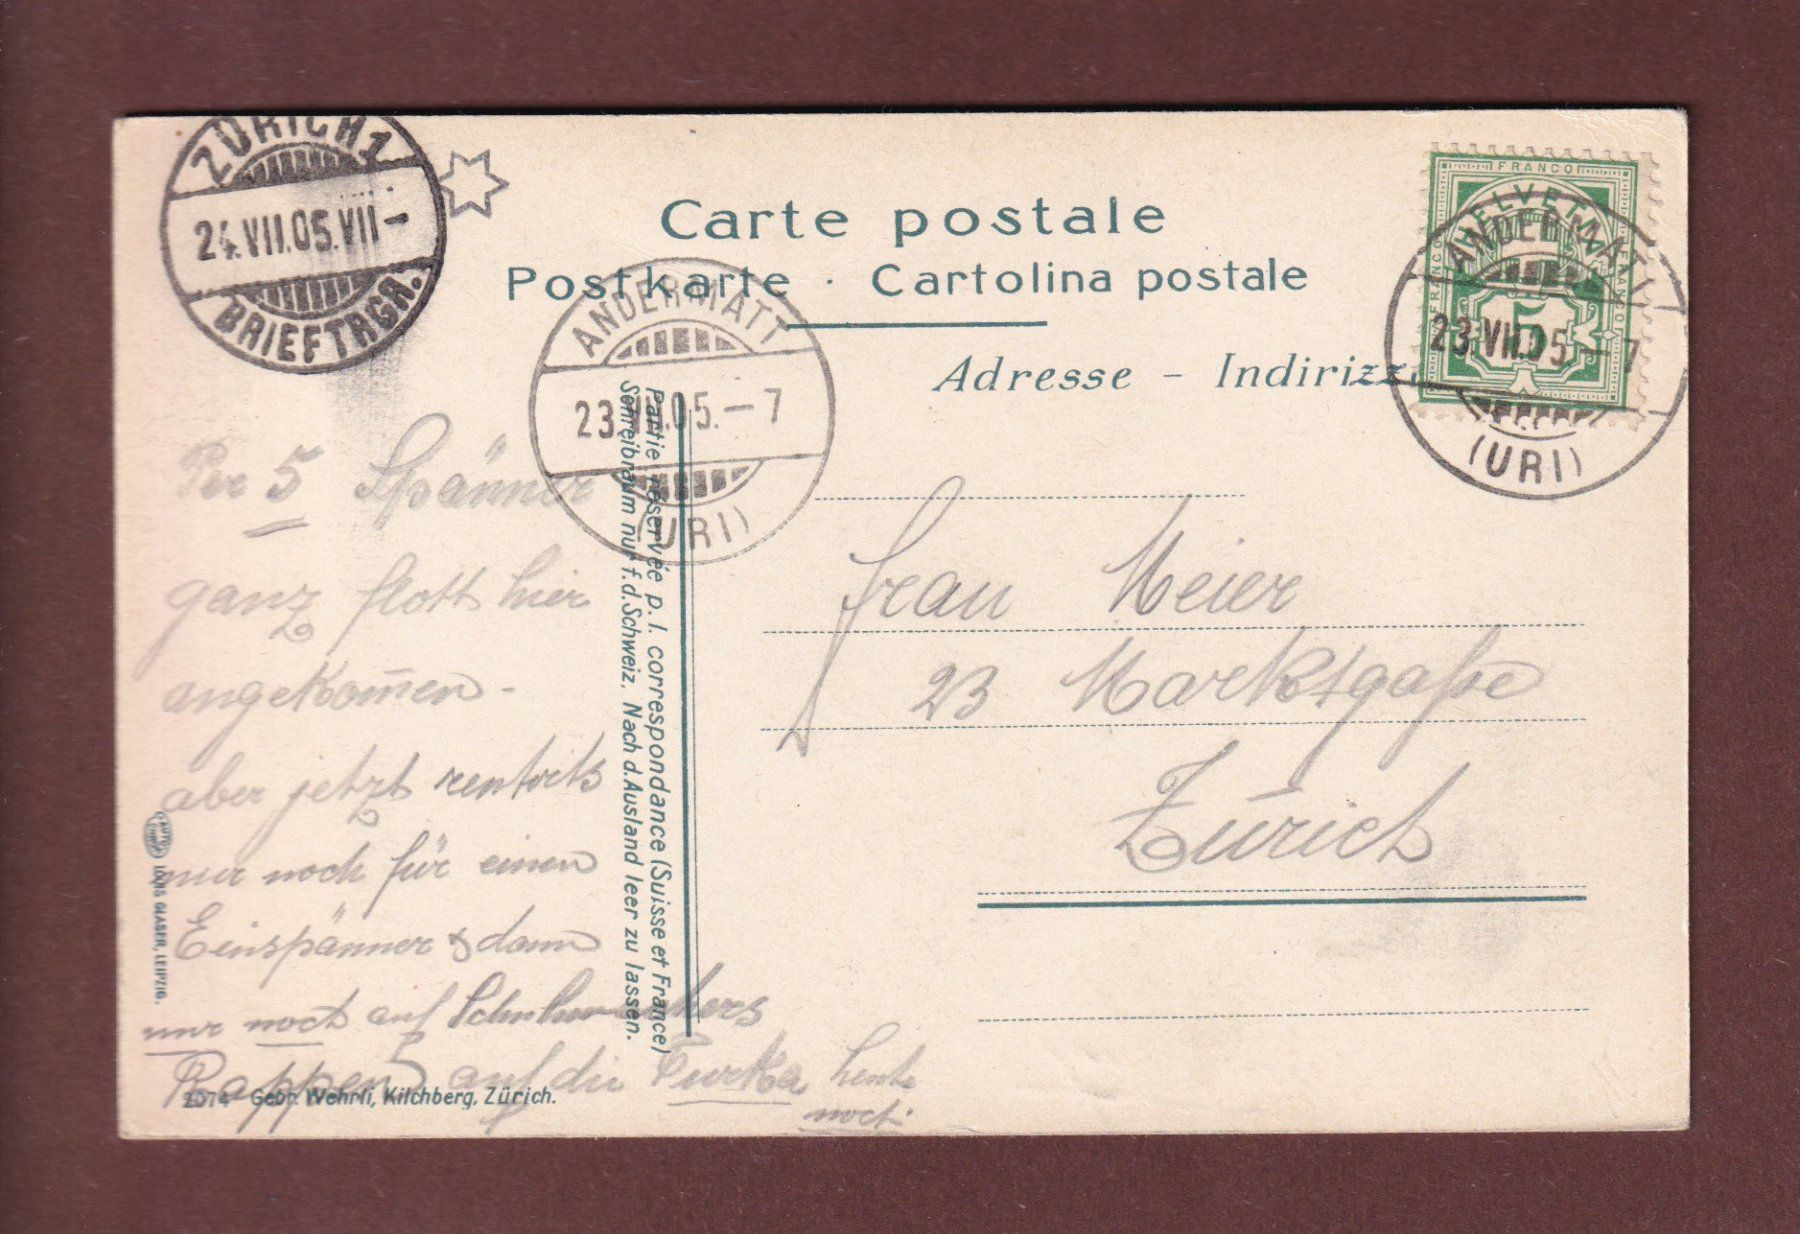 ZÜRICH 1
24.VII.05.VII-
BRIEFTRGR.
Carte postale
Postkarte · Cartolina postale
Adresse - Indirizz
FRANCO
HELVETIA
FRANCO
FRANCO
5
ANDERMATT
23.VII.05.-7
(URI)
ANDERMATT
23.VII.05-7
(URI)
Partie réservée p. l. correspondance (Suisse et France)
Schreibraum nur f. d. Schweiz. Nach d. Ausland leer zu lassen.
Per 5 Spänner
ganz flott hier
angekom̄en -
aber jetzt
nur noch für einen
Einspänner & dann
nur noch auf Schuhmachers
Rappen auf die Furka heute
noch.
Frau Meier
23 Marktgasse
Zürich
LOUIS GLASER, LEIPZIG.
2074 Gebr. Wehrli, Kilchberg, Zürich.